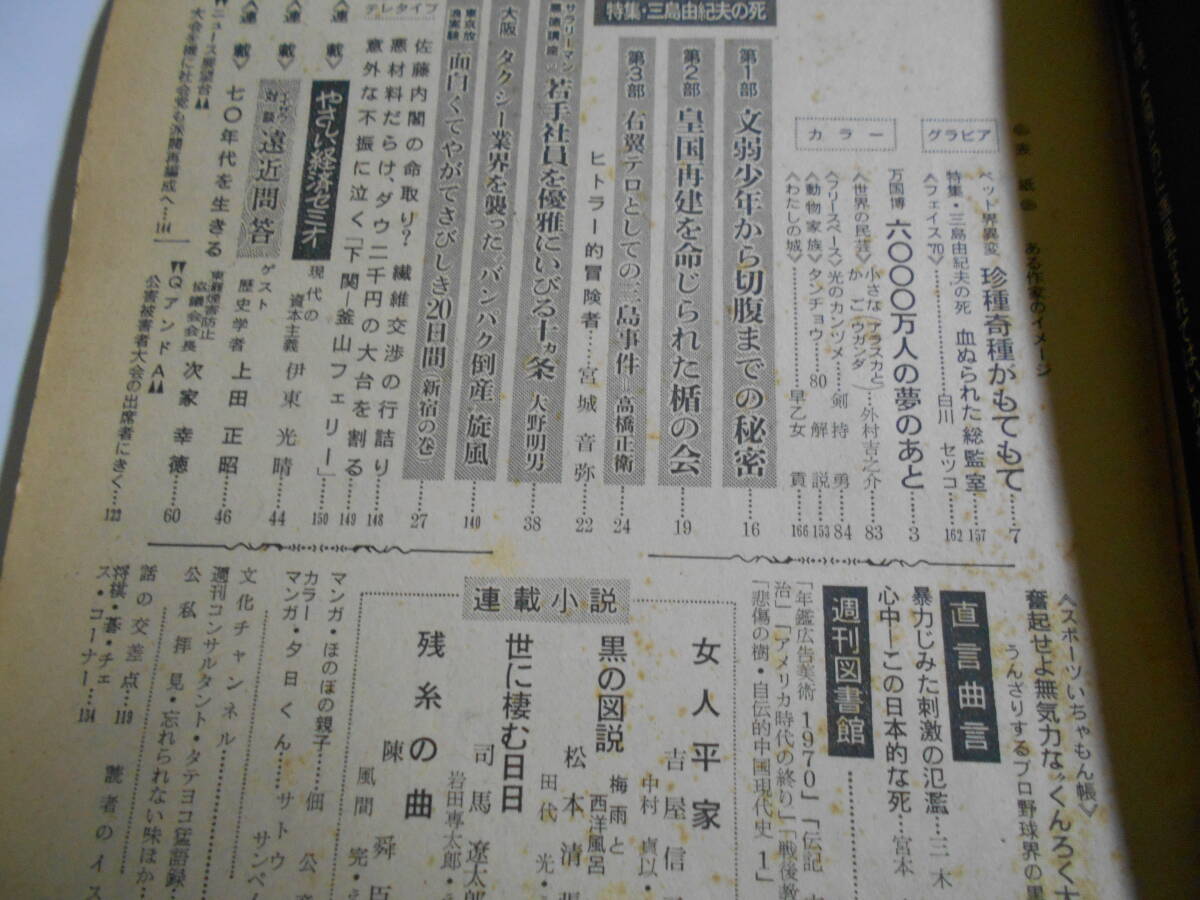 表紙 ある作家のイメージ
グラビア
ペット界異変 珍種奇種がもてもて……7
特集・三島由紀夫の死 血ぬられた総監室……157
〈フェイス'70〉……白川セツコ 162
万国博 六〇〇〇万人の夢のあと……3
カラー
〈世界の民芸〉小さなかご（アラスカとウガンダ）…外村吉之介 83
〈フリースペース〉光のカンヅメ…剣持勇 84
〈動物家族〉タンチョウ……80 解説 153
〈わたしの城〉……早乙女貢 166
特集・三島由紀夫の死
第1部 文弱少年から切腹までの秘密……16
第2部 皇国再建を命じられた楯の会……19
第3部 右翼テロとしての三島事件＝高橋正衛……24
ヒトラー的冒険者……宮城音弥 22
サラリーマン悪徳講座 若手社員を優雅にいびる十ヵ条 大野明男……38
大阪 タクシー業界を襲った“バンパク倒産”旋風……140
東京放浪実験 面白くてやがてさびしき20日間（新宿の巻）……27
テレタイプ
佐藤内閣の命取り？ 繊維交渉の行詰り……148
悪材料だらけ、ダウ二千円の大台を割る……149
意外な不振に泣く「下関―釜山フェリー」……150
〈連載〉やさしい経済ゼミナオ 現代の資本主義 伊東光晴……44
〈連載〉対談 遠近問答 ゲスト 歴史学者 上田正昭……46
〈連載〉七〇年代を生きる 東海煙害防止協議会会長 次家幸徳……60
ニュース展望台
大会を機に社会党も派閥再編成へ…144
QアンドA
公害被害者大会の出席者にきく…123
〈スポーツいちゃもん帳〉
奮起せよ無気力な“くんろく大
うんざりするプロ野球界の黒
直言曲言
暴力じみた刺激の氾濫…三木
心中―この日本的な死…宮本
週刊図書館
「年鑑広告美術1970」「伝記
治」「アメリカ時代の終り」「戦後教
「悲傷の樹・自伝的中国現代史1」
連載小説
女人平家 吉屋信子
中村貞以・
黒の図説 梅雨と西洋風呂 松本清張
田代光・
世に棲む日日 司馬遼太郎
岩田専太郎・
残糸の曲 陳舜臣
風間完・
マンガ・ほのぼの親子……佃公彦
カラーマンガ・夕日くん…サトウサンペ
文化チャンネル
週刊コンサルタント・タテヨコ猛語録・
公私拝見・忘れられない味ほか
話の交差点…119
将棋・碁・チェス・コーナー…134
読者のイス